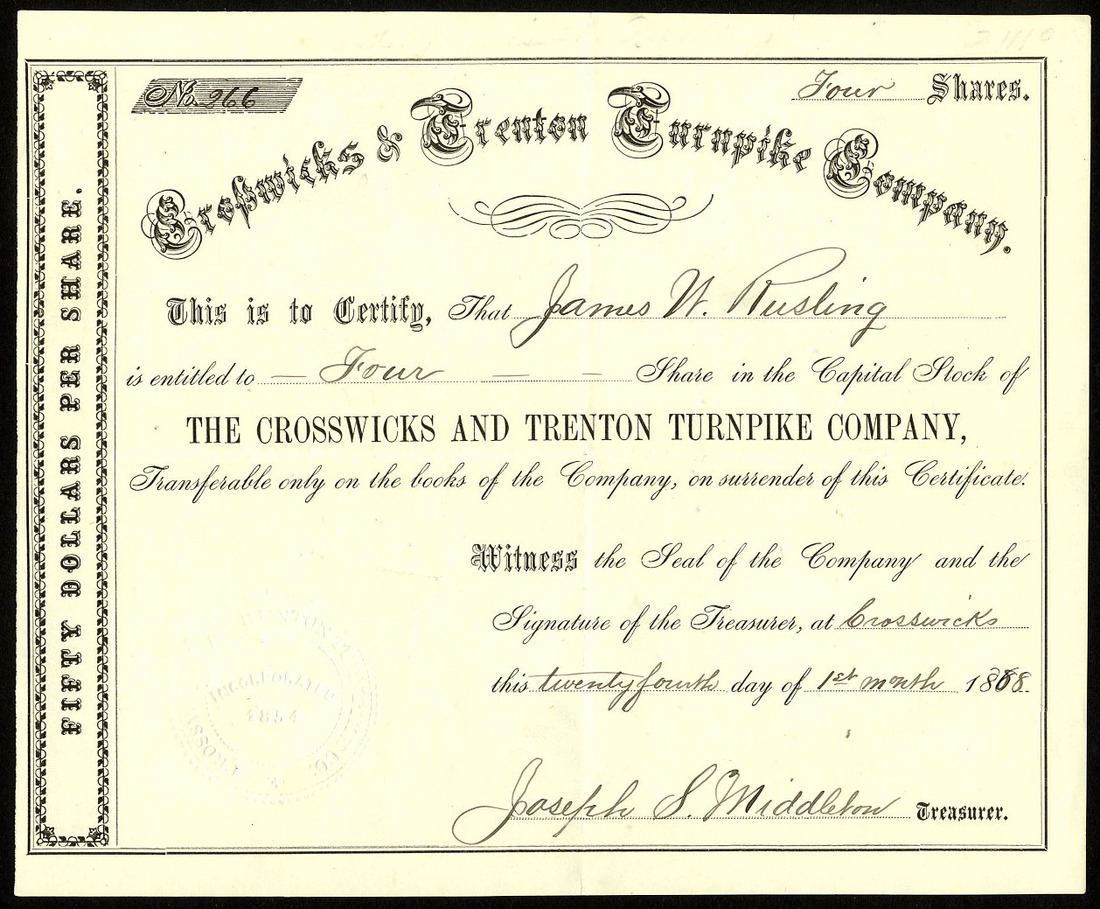 No. 266
Four Shares.
Crosswicks & Trenton Turnpike Company.
FIFTY DOLLARS PER SHARE.
This is to Certify, That James W. Rusling
is entitled to — Four — — Share in the Capital Stock of
THE CROSSWICKS AND TRENTON TURNPIKE COMPANY,
Transferable only on the books of the Company, on surrender of this Certificate.
Witness the Seal of the Company and the
Signature of the Treasurer, at Crosswicks
this twenty fourth day of 1st month 1888.
INCORPORATED
1854
Joseph S. Middleton Treasurer.